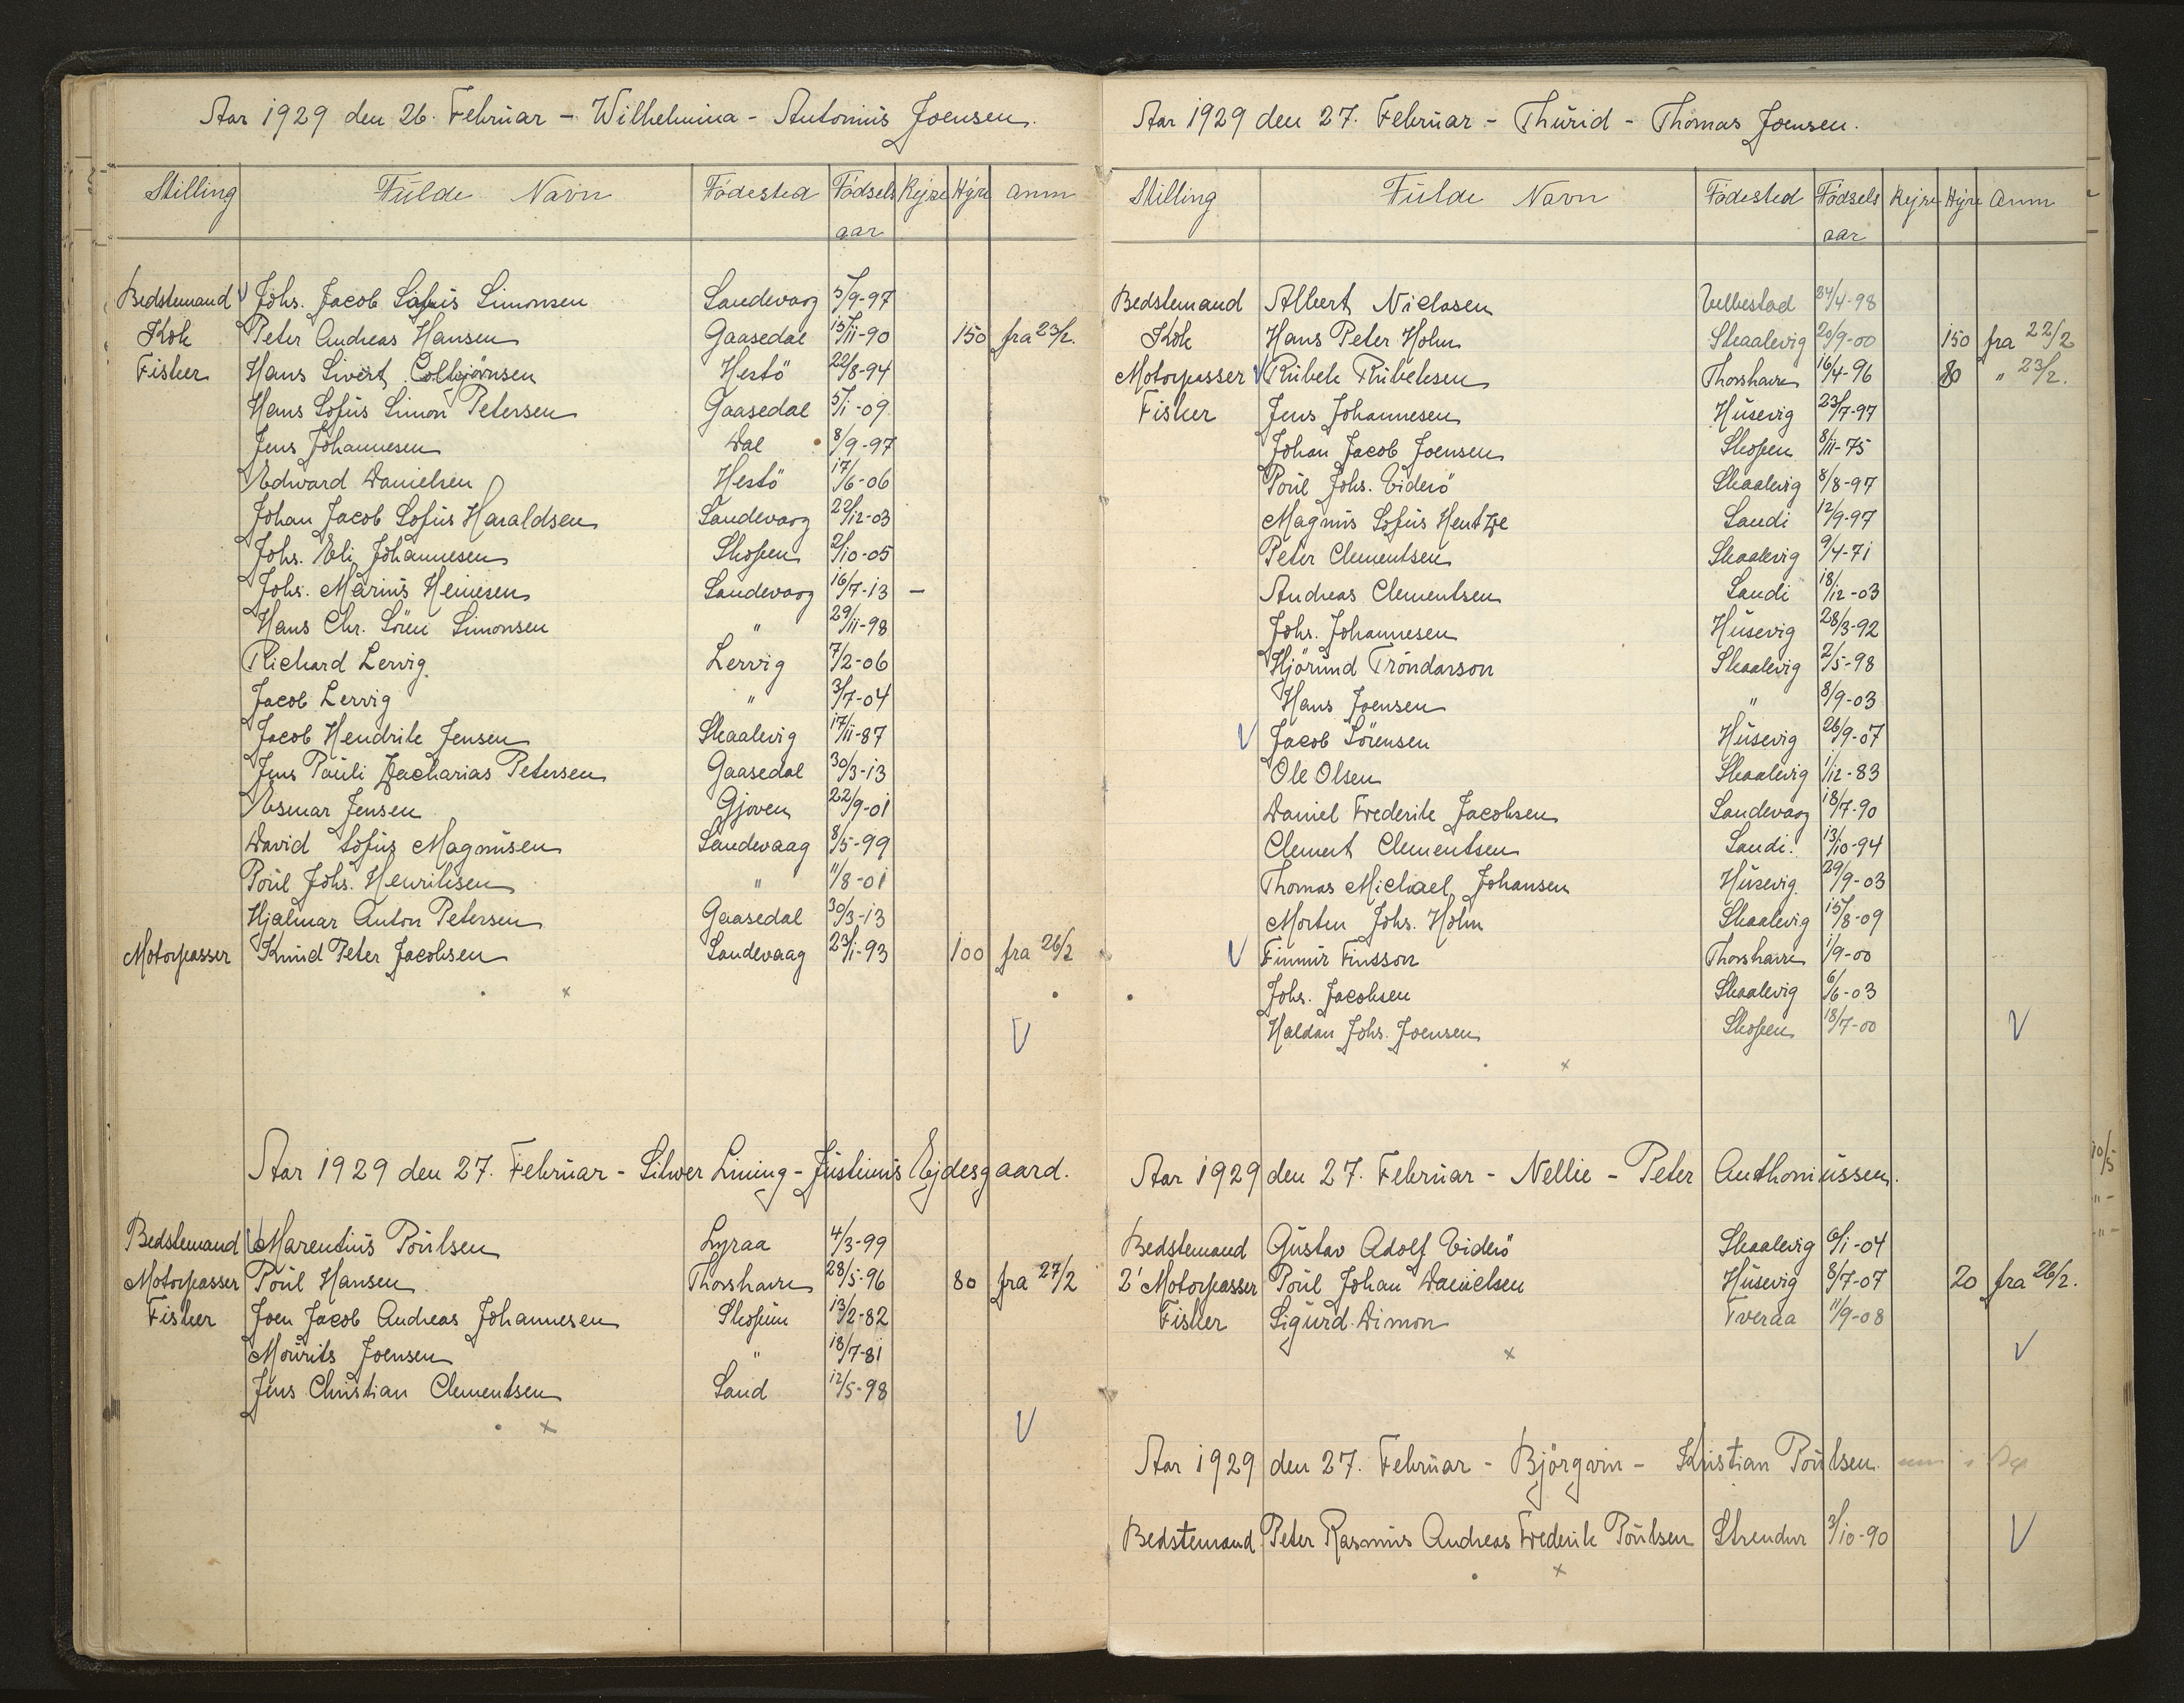 Aar 1929 den 26. Februar - Wilhelmina - Antonius Joensen.
Stilling Fulde Navn Födested Födsels aar Rejse Hyre Anm
Bedstemand Johs. Jacob Sofus Simonsen Sandevaag 5/9-97
Kok Peter Andreas Hansen Gaasedal 15/11-90 150 fra 23/2.
Fisker Hans Sivert Colbjörnsen Hestö 22/8-94
Hans Sofus Simon Petersen Gaasedal 5/1-09
Jens Johannesen Dal 8/9-97
Edward Danielsen Hestö 17/6-06
Johan Jacob Sofus Haraldsen Sandevaag 22/12-03
Johs. Eli Johannesen Skopen 2/10-05
Johs. Marius Heinesen Sandevaag 16/7-13 -
Hans Chr. Sören Simonsen " 29/11-98
Richard Lervig Lervig 7/2-06
Jacob Lervig " 3/7-04
Jacob Hendrik Jensen Skaalevig 17/11-87
Jens Pauli Zacharias Petersen Gaasedal 30/3-13
Esmar Jensen Gjoven 22/9-01
David Sofus Magnusen Sandevaag 8/5-99
Poul Johs. Henriksen " 11/8-01
Hjalmar Anton Petersen Gaasedal 30/3-13
Motorpasser Knud Peter Jacobsen Sandevaag 23/1-93 100 fra 26/2
Aar 1929 den 27. Februar - Silwer Lining - Justinus Ejdesgaard.
Bedstemand Marentius Poulsen Lyraa 4/3-99
Motorpasser Poul Hansen Thorshavn 28/5-96 80 fra 27/2
Fisker Joen Jacob Andreas Johannesen Skopun 13/2-82
Mourits Joensen " 18/7-81
Jens Christian Clementsen Sand 12/5-98
Aar 1929 den 27. Februar - Thurid - Thomas Joensen.
Stilling Fulde Navn Födested Födsels aar Rejse Hyre Anm
Bedstemand Albert Niclasen Velbestad 24/4-98
Kok Hans Peter Holm Skaalevig 20/9-00 150 fra 22/2
Motorpasser Rubek Rubeksen Thorshavn 16/4-96 80 " 23/2.
Fisker Jens Johannesen Husevig 23/7-97
Johan Jacob Joensen Skopen 8/11-75
Poul Johs. Viderö Skaalevig 8/8-97
Magnus Sofus Hentze Sandi 12/9-97
Peter Clementsen Skaalevig 9/4-71
Andreas Clementsen Sandi 18/12-03
Johs. Johannesen Husevig 28/3-92
Hjörund Tróndarson Skaalevig 2/5-98
Hans Joensen " 8/9-03
Jacob Sörensen Husevig 26/9-07
Ole Olsen Skaalevig 1/12-83
Daniel Frederik Jacobsen Sandevaag 18/7-90
Clement Clementsen Sandi. 13/10-94
Thomas Michael Johansen Husevig 29/9-03
Morten Johs. Holm Skaalevig 15/8-09
Finnur Finsson Thorshavn 1/9-00
Johs. Jacobsen Skaalevig 6/6-03
Haldan Johs. Joensen Skopen 18/7-00
Aar 1929 den 27. Februar - Nellie - Peter Anthoniussen.
Bedstemand Gustav Adolf Viderö Skaalevig 6/1-04
2' Motorpasser Poul Johan Danielsen Husevig 8/7-07 20 fra 26/2.
Fisker Sigurd Dimon Tveraa 11/9-08
Aar 1929 den 27. Februar - Björgvin - Kristian Poulsen.
Bedstemand Peter Rasmus Andreas Frederik Poulsen Strendur 3/10-90
10/5